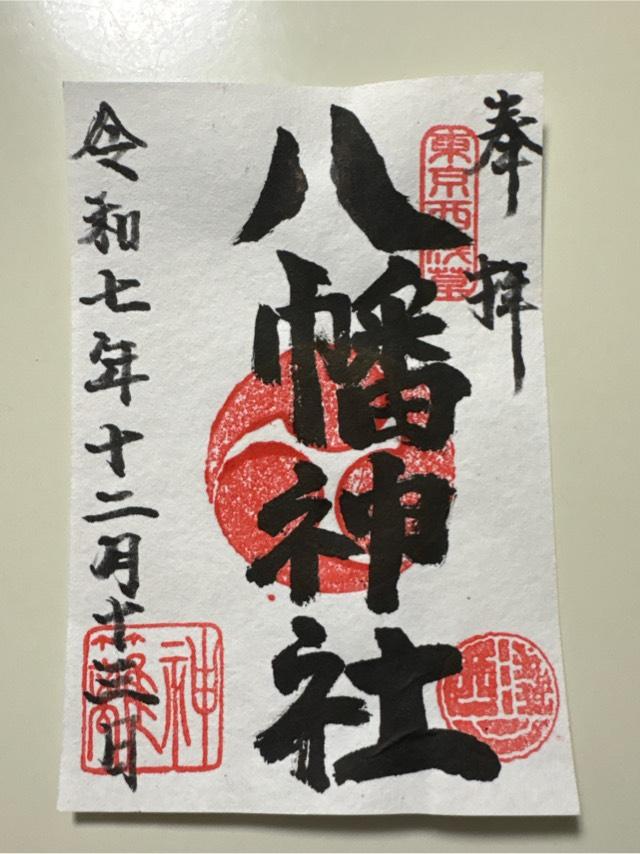 奉拝
東京西浅草
八幡神社
令和七年十二月十三日
神